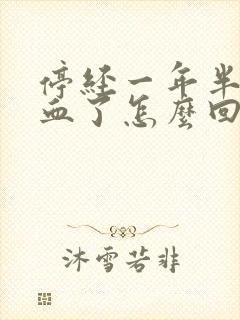 停經一年半
血了怎麼回
沐雪若非